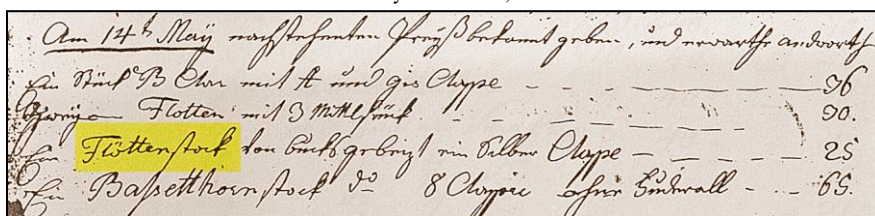 Am 14t Maÿ nachstehenten Preÿß bekannt geben, und erwarthe andworth
Ein Stück B Clar mit A und gis Clape - - - - - - - - 36
Flotten mit 3 Mittlstück - - - - - - 90.
Ein Flöttenstock von bucks gebeizt ein Silber Clape - - - - - 25
Ein Bassetthornstock do 8 Clappen ohne - - - 65.